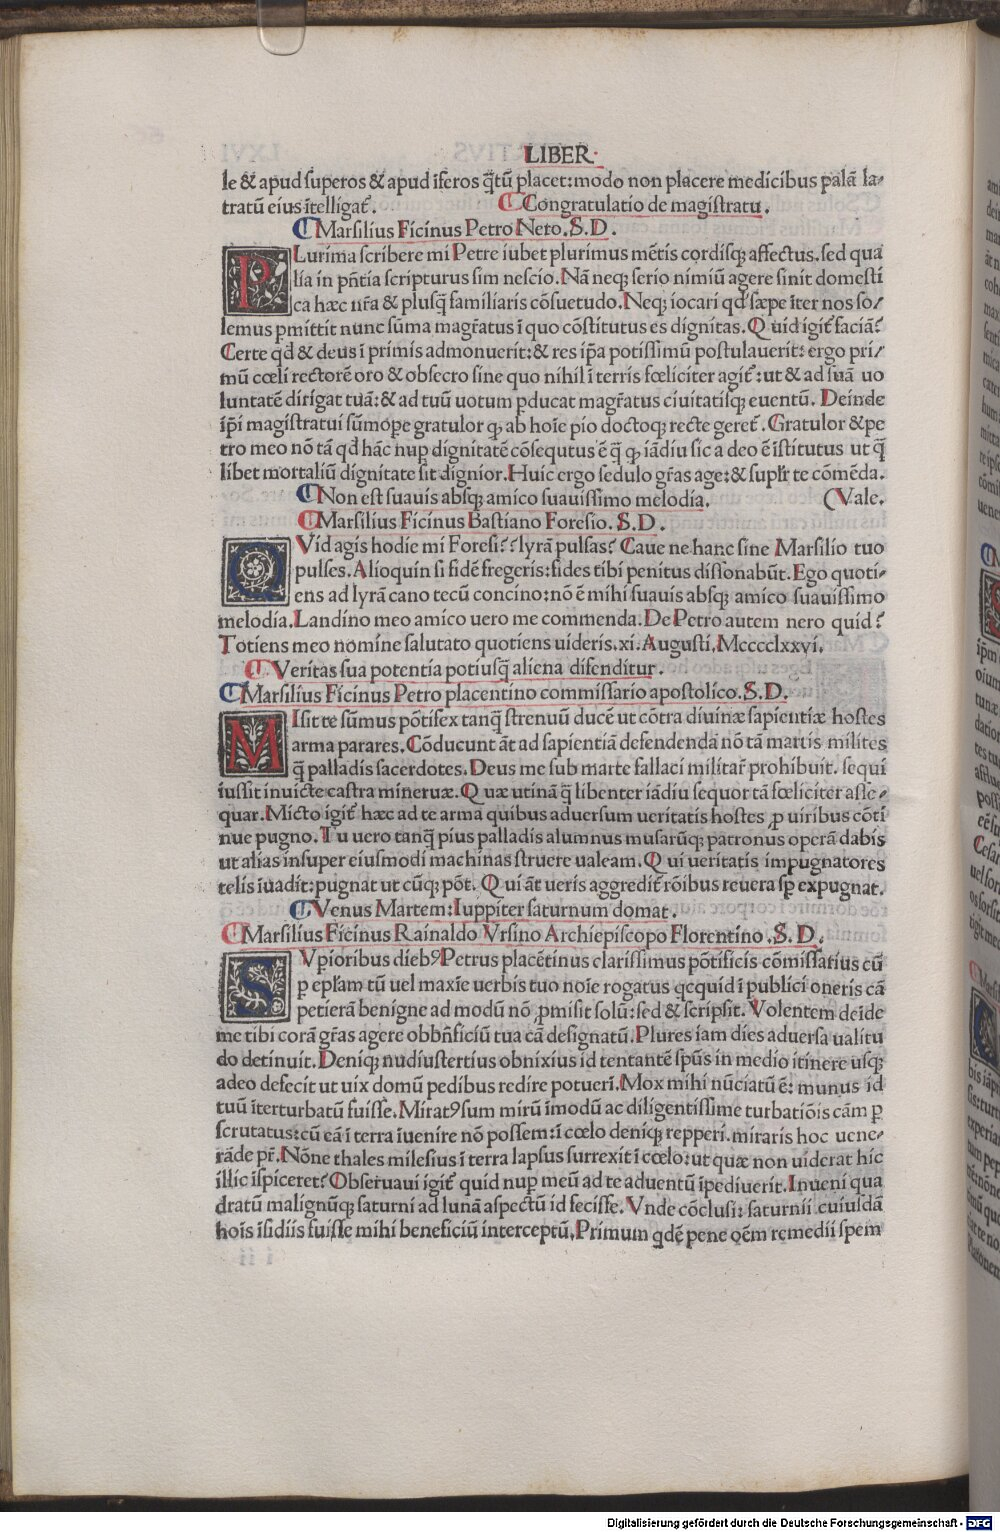 LIBER
le & apud superos & apud īferos q̄tū placet:modo non placere medicibus palā la-
tratū eius ītelligat̄. Congratulatio de magistratu.
Marsilius Ficinus Petro Nero.S.D.
PLurima scribere mi Petre iubet plurimus mētis cordisq; affectus.sed qua
lia in pn̄tia scripturus sim nescio.Nā neq; serio nimiū agere sinit domesti
ca hæc nr̄a & plusq̄ familiaris cōsuetudo.Neq; iocari qd̄ sæpe īter nos so/
lemus ꝑmittit nunc sūma magr̄atus ī quo cōstitutus es dignitas.Quid igit̄ faciā?
Certe qd̄ & deus ī primis admonuerit:& res ip̄a potissimū postulauerit:ergo pri/
mū cœli rectorē oro & obsecro sine quo nihil ī terris fœliciter agit̄:ut & ad suā uo
luntatē dirigat tuā:& ad tuū uotum ꝑducat magr̄atus ciuitatisq; euentū. Deinde
ip̄i magistratui sūmope gratulor ꝙ ab hoīe pio doctoq; recte geret̄.Gratulor & pe
tro meo nō tā qd̄ hāc nuꝑ dignitatē cōsequtus ē q̄ ꝙ iādiu sic a deo ē īstitutus ut q̄
libet mortaliū dignitate sit dignior.Huic ergo sedulo gr̄as age:& supl̄r te cōmēda.
Non est suauis absq; amico suauissimo melodia. (Vale.
Marsilius Ficinus Bastiano Foresio.S.D.
QVid agis hodie mi Foresi??lyrā pulsas?Caue ne hanc sine Marsilio tuo
pulses.Alioquin si fidē fregeris:fides tibi penitus dissonabūt.Ego quoti-
ens ad lyrā cano tecū concino:nō ē mihi suauis absq; amico suauissimo
melodia.Landino meo amico uero me commenda.De Petro autem nero quid?
Totiens meo nomine salutato quotiens uideris.xi.Augusti.Mcccclxxvi.
Veritas sua potentia potiusq̄ aliena difenditur.
Marsilius Ficinus Petro placentino commissario apostolico.S.D.
MIsit te sūmus pōtifex tanq̄ strenuū ducē ut cōtra diuinæ sapientiæ hostes
arma parares.Cōducunt āt ad sapientiā defendendā nō tā martis milites
q̄ palladis sacerdotes.Deus me sub marte fallaci militar̄ prohibuit. sequi
iussit inuicte castra mineruæ.Quæ utinā q̄ libenter iādiu sequor tā fœliciter asse-
quar.Micto igit̄ hæc ad te arma quibus aduersum ueritatis hostes ꝓ uiribus cōti
nue pugno.Tu uero tanq̄ pius palladis alumnus musarūq; patronus operā dabis
ut alias insuper eiusmodi machinas struere ualeam.Qui ueritatis impugnatores
telis īuadit:pugnat ut cūq; pōt.Qui āt ueris aggredit̄ rōibus reuera sꝑ expugnat.
Venus Martem:Iuppiter saturnum domat.
Marsilius Ficinus Rainaldo Vrsino Archiepiscopo Florentino.S.D.
SVpioribus dieb⁹ Petrus placētinus clarissimus pōtificis cōmissatius cū
ꝑ epl̄am tū uel maxīe uerbis tuo noīe rogatus qcquid ī publici oneris cā
petierā benigne ad modū nō ꝓmisit solū:sed & scripsit.Volentem deīde
me tibi corā gr̄as agere obbn̄ficiū tua cā designatū.Plures iam dies aduersa ualitu
do detinuit.Deniq; nudiustertius obnixius id tentantē sp̄us in medio itinere usq;
adeo defecit ut uix domū pedibus redire potueri.Mox mihi nūciatū ē: munus id
tuū īterturbatū fuisse.Mirat⁹ sum mirū īmodū ac diligentissime turbatiōis cām ꝑ
scrutatus:cū eā ī terra īuenire nō possem:ī cœlo deniq; repperi.miraris hoc uene-
rāde pr̄.Nōne thales milesius ī terra lapsus surrexit ī cœlo:ut quæ non uiderat hic
illic īspiceret?Obseruaui igit̄ quid nuꝑ meū ad te aduentū īpediuerit.Inueni qua
dratū malignūq; saturni ad lunā aspectū id fecisse.Vnde cōclusi:saturnii cuiusdā
hoīs īsidiis fuisse mihi beneficiū interceptū.Primum qdē pene oēm remedii spem